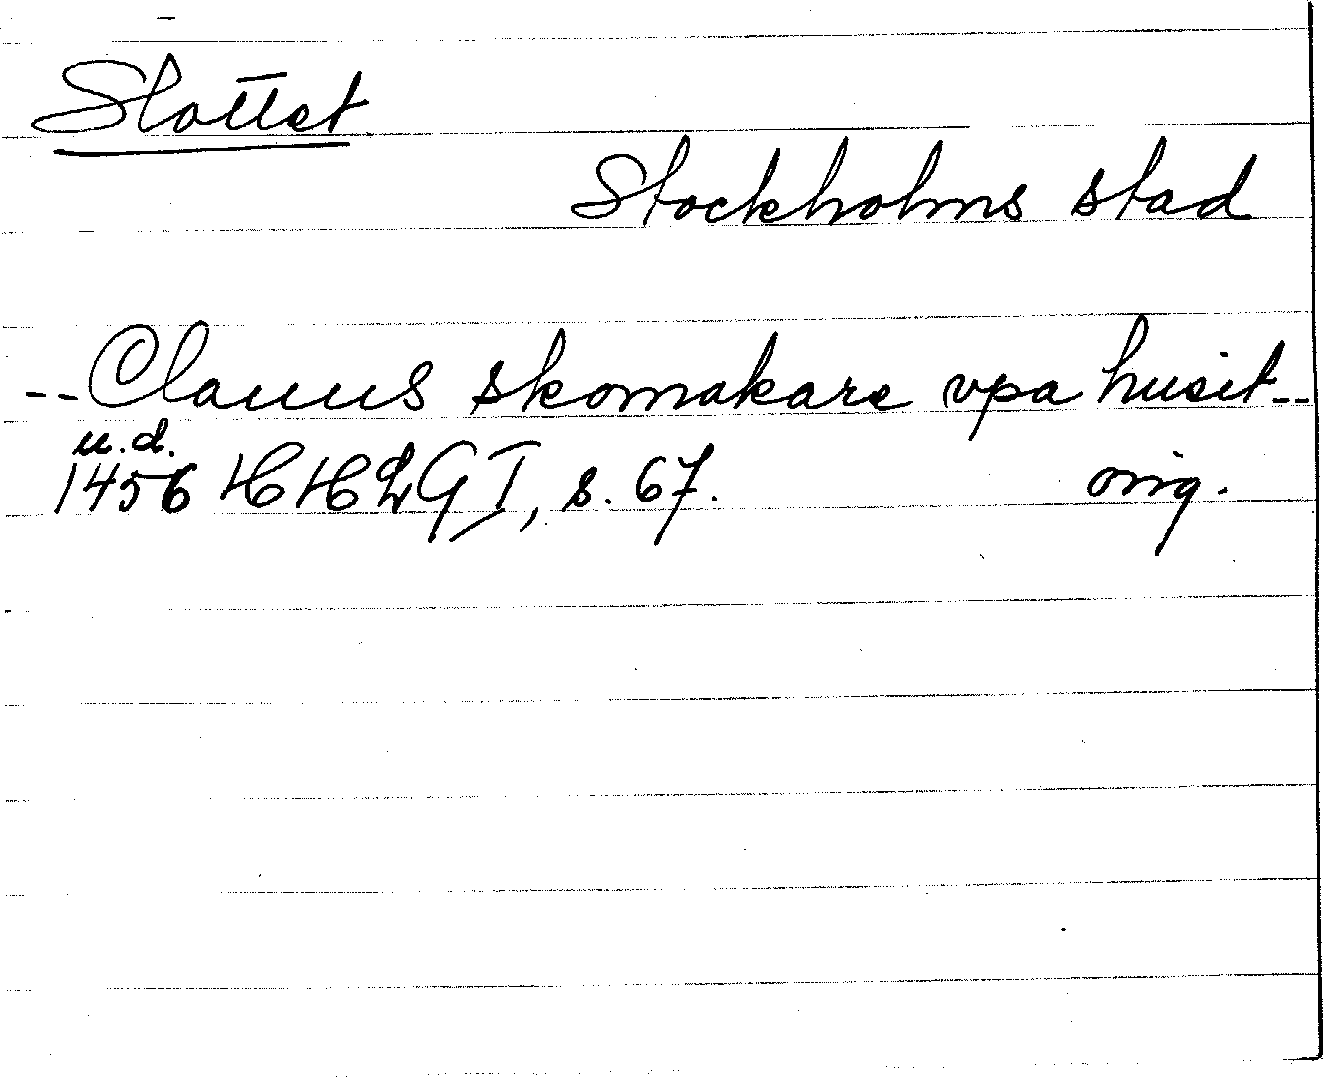 Slottet
Stockholms stad
--Clauus skomakare vpa husit--
u.d.
1456 HHLG I, s. 67. orig.